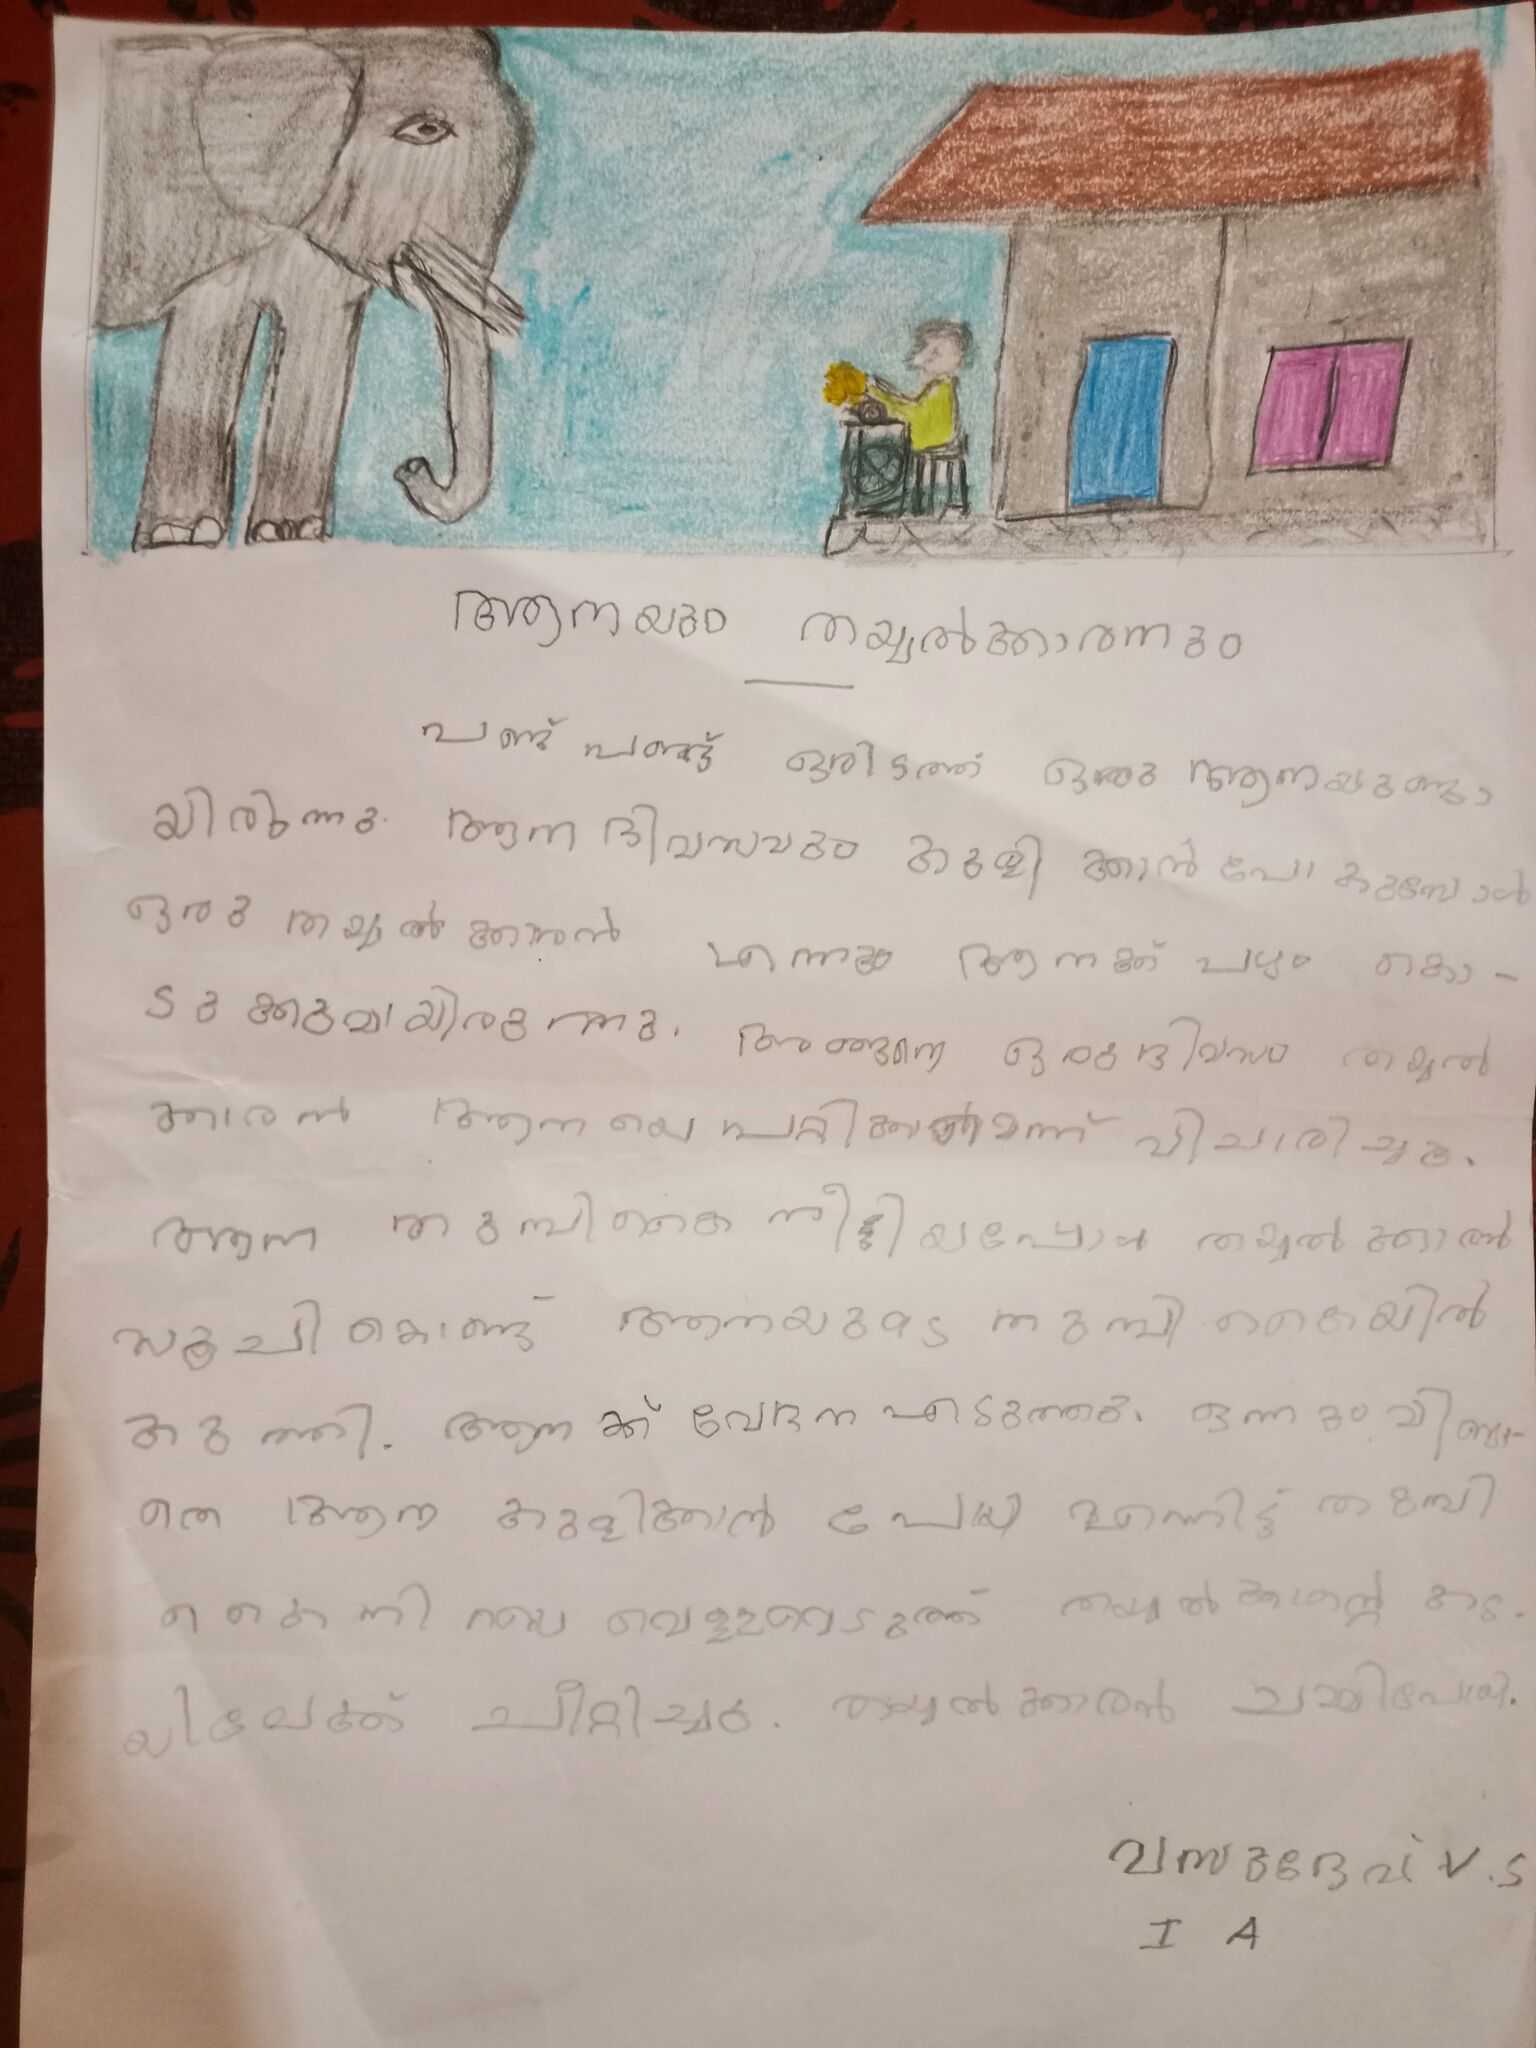 ആനയും തയ്യൽക്കാരനും
പണ്ട് പണ്ട് ഒരിടത്ത് ഒരു ആനയുണ്ടാ
യിരുന്നു. ആന ദിവസവും കുളിക്കാൻ പോകുമ്പോൾ
ഒരു തയ്യൽക്കാരൻ എന്നും ആനക്ക് പഴം കൊ-
ടുക്കുമായിരുന്നു. അങ്ങനെ ഒരു ദിവസം തയ്യൽ
ക്കാരൻ ആനയെ പറ്റിക്കാമെന്ന് വിചാരിച്ചു.
ആന തുമ്പിക്കൈ നീട്ടിയപ്പോൾ തയ്യൽക്കാരൻ
സൂചികൊണ്ട് ആനയുടെ തുമ്പികൈയിൽ
കുത്തി. ആനക്ക് വേദന എടുത്തു. ഒന്നും മിണ്ടാ-
തെ ആന കുളിക്കാൻ പോയി എന്നിട്ട് തുമ്പി
കൈ നിറയെ വെള്ളമെടുത്ത് തയ്യൽക്കാരന്റെ കട
യിലേക്ക് ചീറ്റിച്ചു. തയ്യൽക്കാരൻ ചമ്മിപോയി.
വസുദേവ് V.S
I A